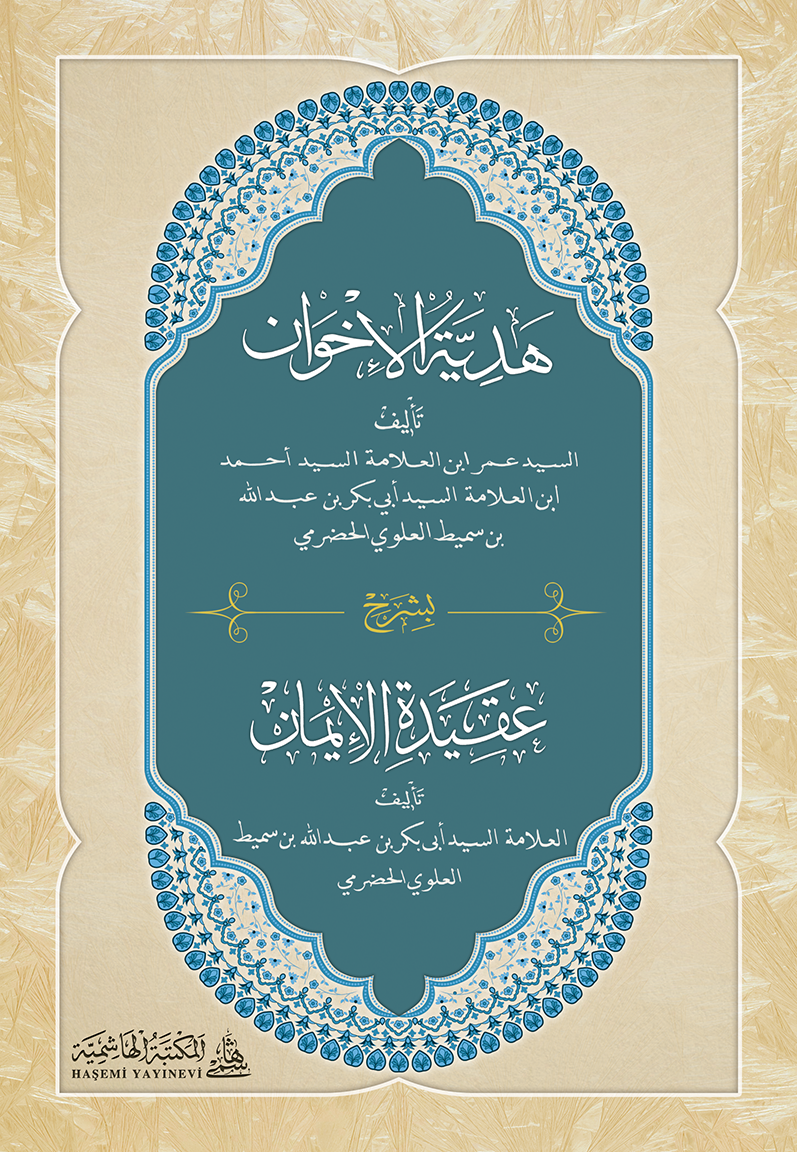 هَدِيَّةُ الْإِخْوَان
تَأْلِيفُ
السيد عمر ابن العلامة السيد أحمد
ابن العلامة السيد أبي بكر بن عبد الله
بن سميط العلوي الحضرمي
بِشَرْحِ
عَقِيدَةِ الْإِيمَانِ
تَأْلِيفُ
العلامة السيد أبى بكر بن عبد الله بن سميط
العلوي الحضرمي
المَكْتَبَةُ الهَاشِمِيَّة
HAŞEMİ YAYINEVİ